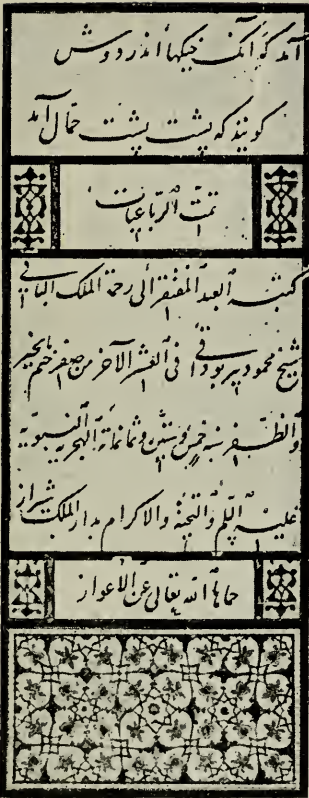 آمد که آنک خیکها اندر دوش
کویند که پشت پشت حمال آمد
تمت الرباعیات
کتبه العبد المفتقر الی رحمة الملک الباقی
شیخ محمود پیر بوداقی فی العشر الآخر من صفر ختم بالخیر
والظفر سنه خمس وستین وثمانمائة الهجریه النبویه
علیه السلام والتحیة والاکرام بدار الملک شیراز
حماها الله تعالی عن الاعواز